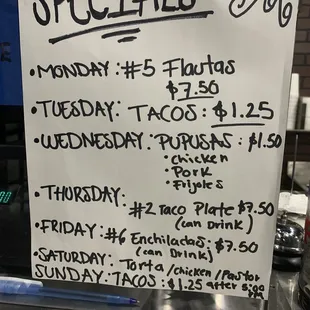 SPECIALS
• MONDAY: #5 Flautas
$7.50
• TUESDAY: TACOS: $1.25
• WEDNESDAY: PUPUSAS: $1.50
• chicken
• Pork
• Frijoles
• THURSDAY:
#2 Taco Plate $7.50
(can Drink)
• FRIDAY: #6 Enchiladas: $7.50
(can Drink)
• SATURDAY: Torta /chicken/Pastor
SUNDAY: TACOS: $1.25 after 5:00
PM